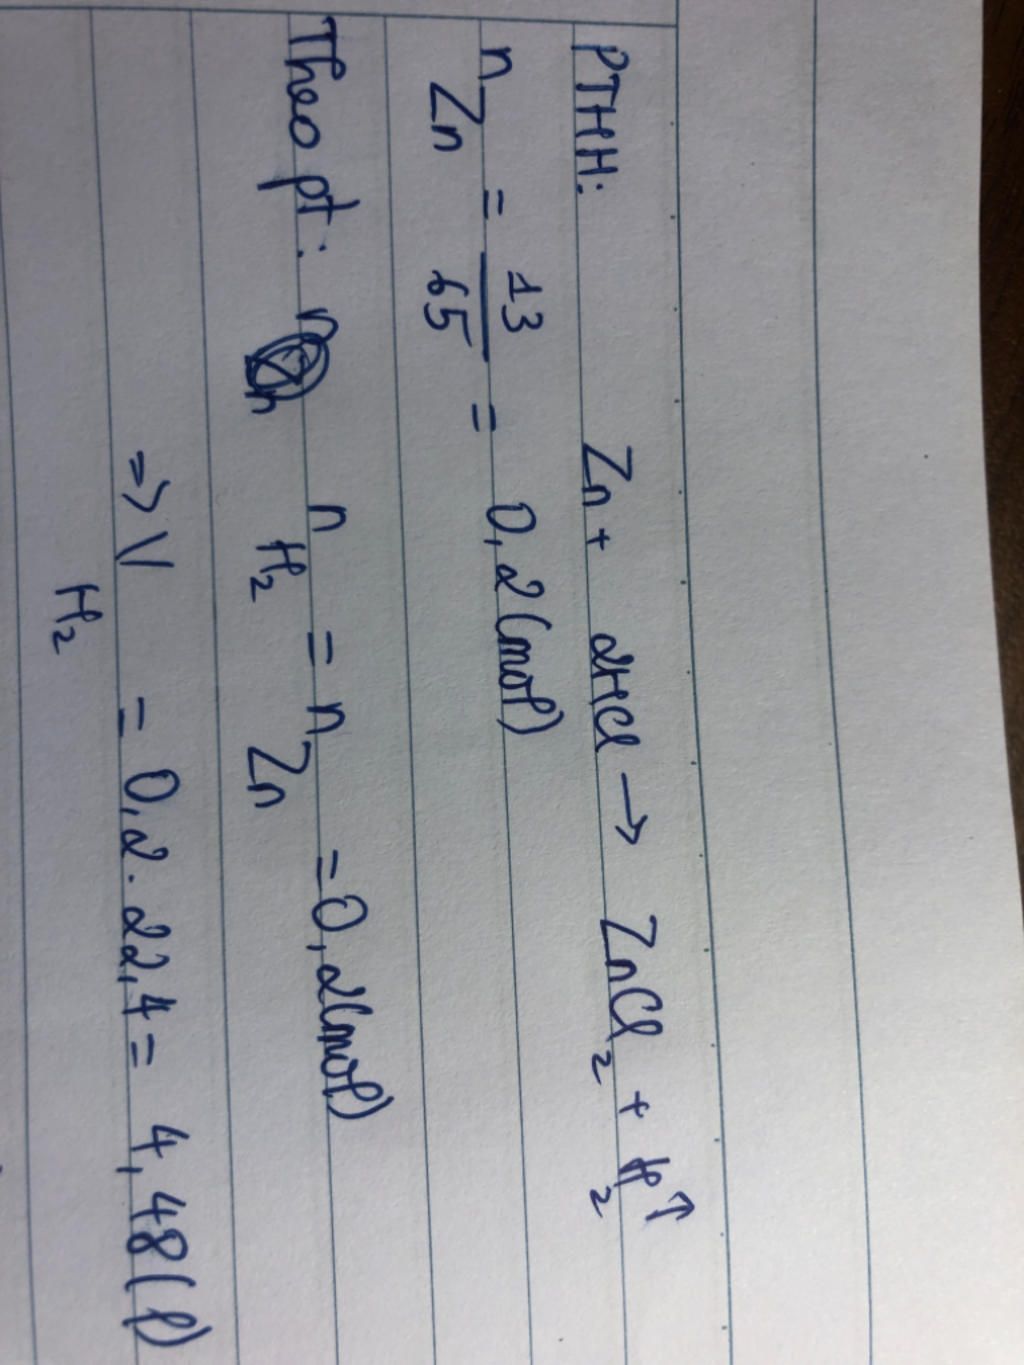 PTHH: Zn + 2HCl → ZnCl₂ + H₂↑
n Zn = 13/65 = 0,2 (mol)
Theo pt: n n H₂ = n Zn = 0,2 (mol)
=> V H₂ = 0,2 . 22,4 = 4,48 (l)